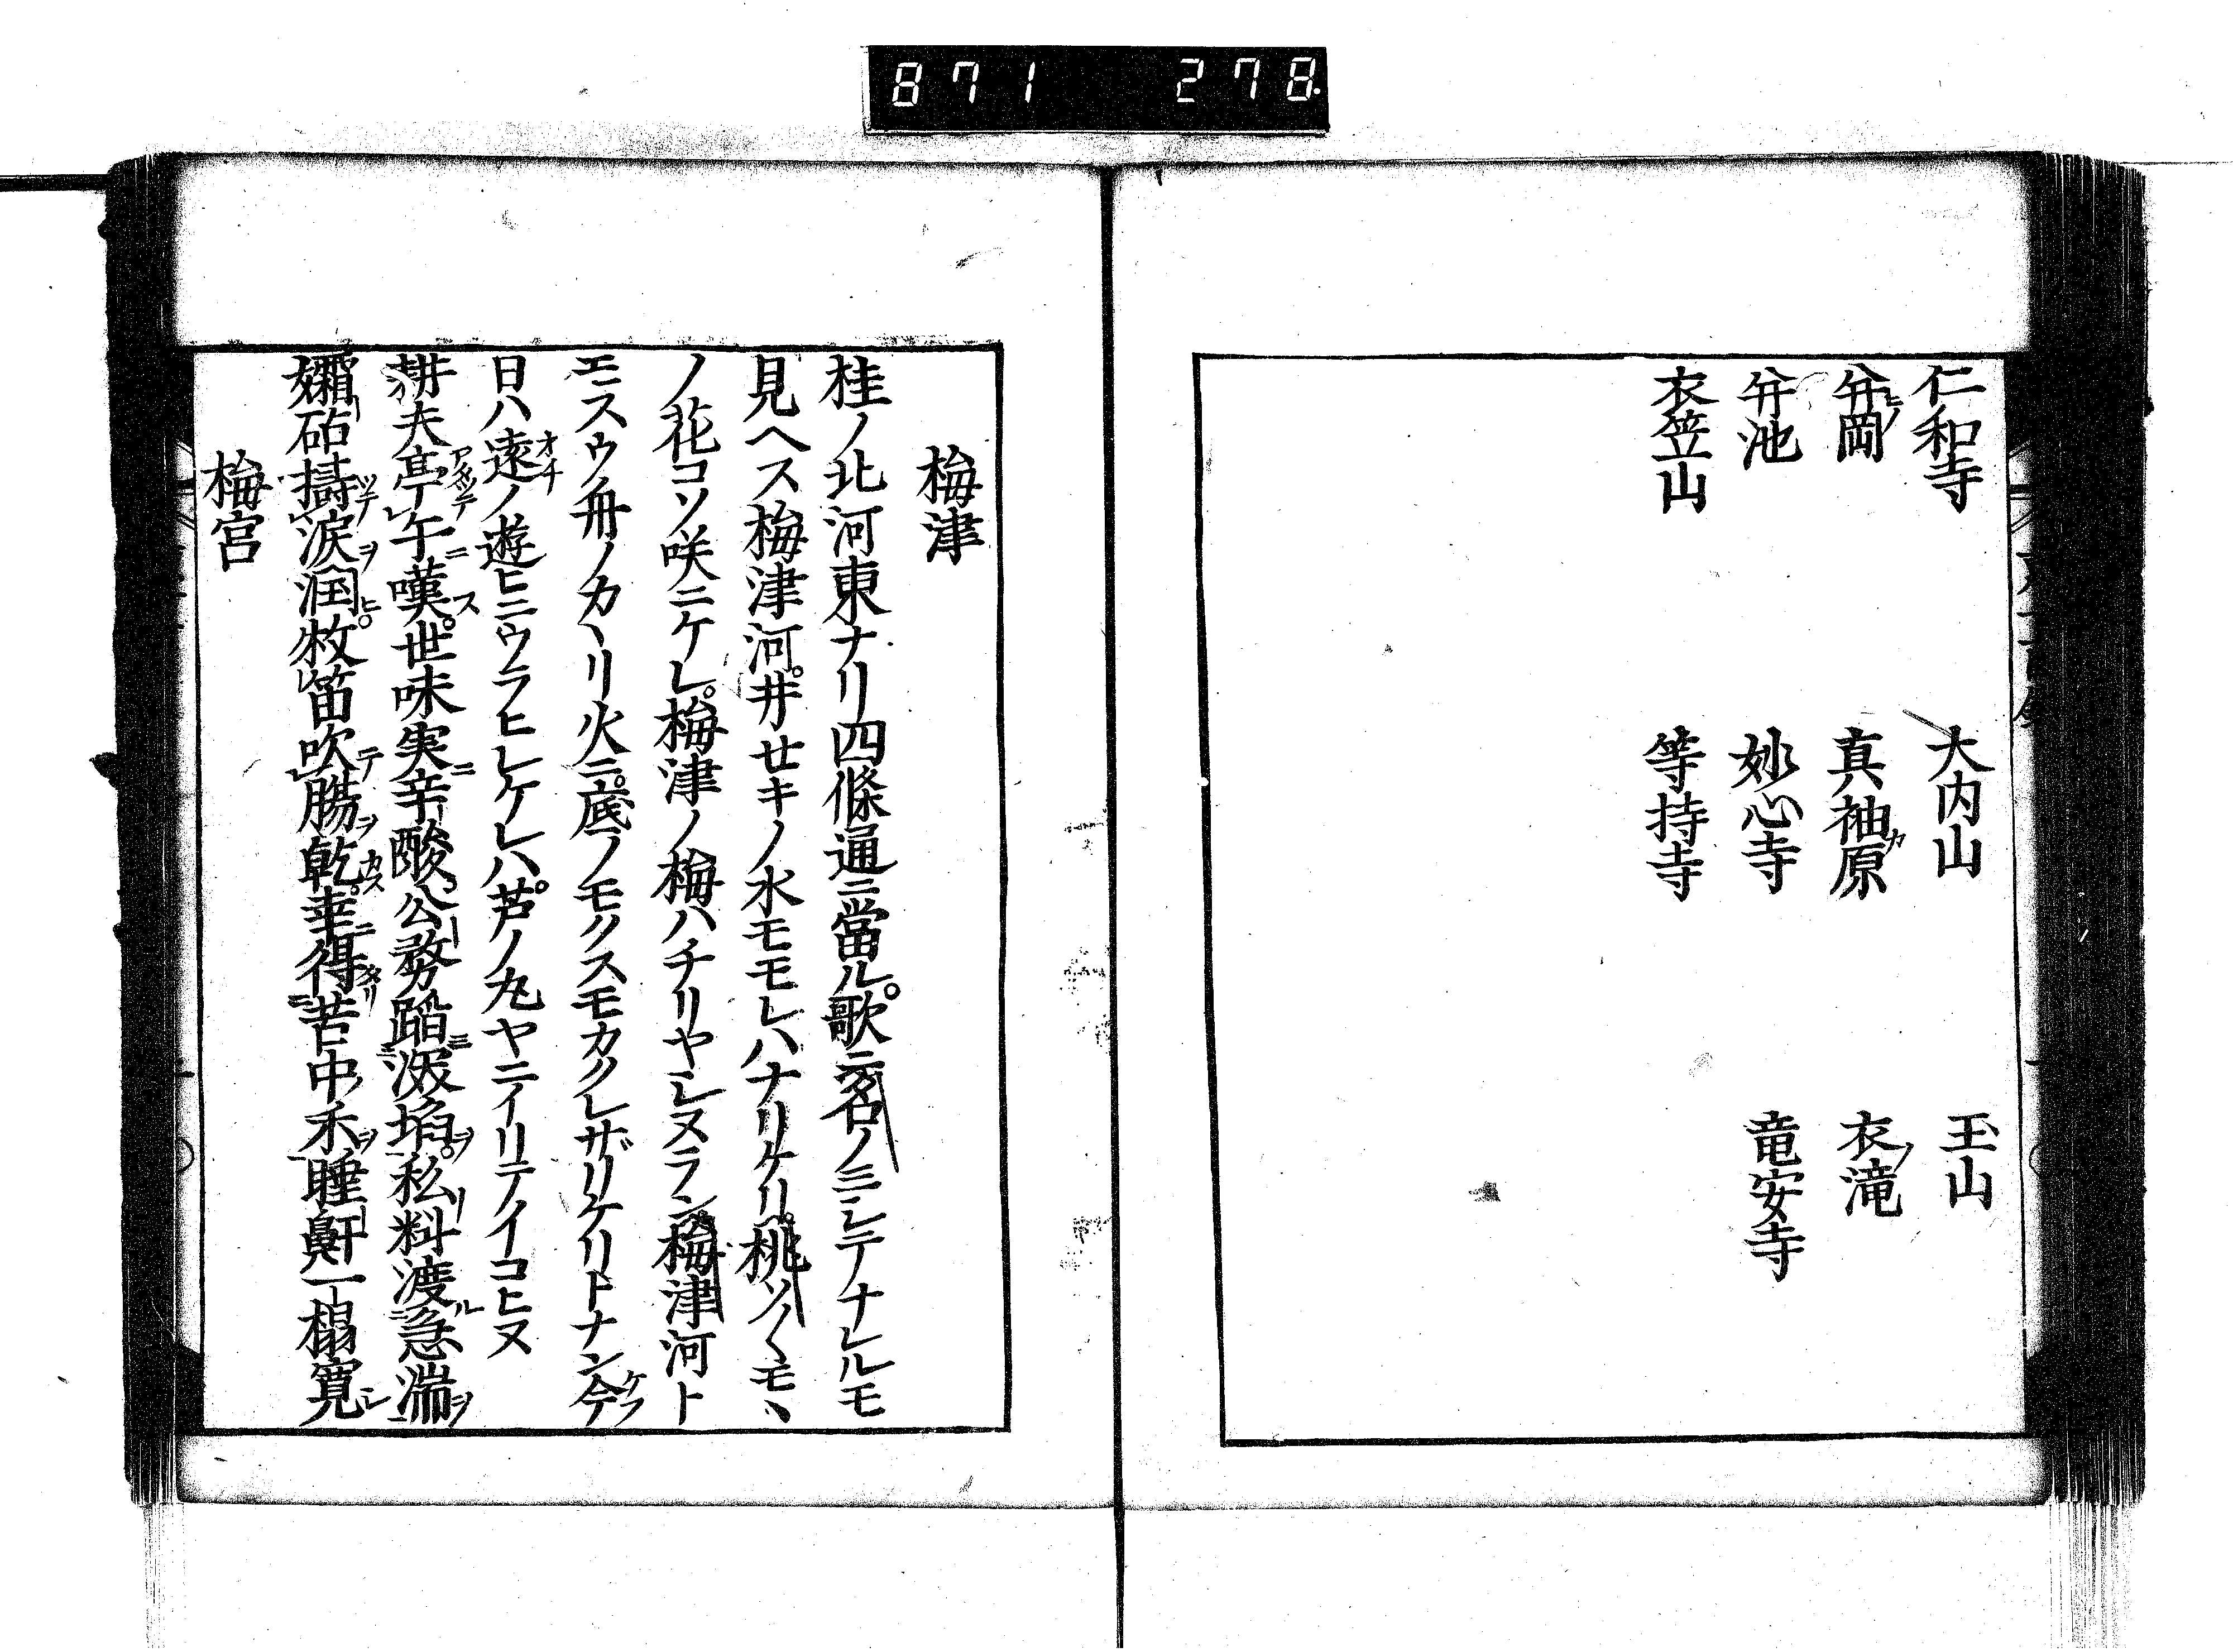 871 278
仁和寺 大内山 玉山
弁岡 真袖原 衣滝
弁池 妙心寺 竜安寺
衣笠山 等持寺
梅津
桂ノ北河東ナリ四條通ニ當ル。歌ニ名ノミシテナレルモ
見ヘス梅津河。井セキノ水モモレハナリケリ。桃ソノヽモヽ
ノ花コソ咲ニケレ。梅津ノ梅ハチリヤシヌラン。梅津河ト
モニスウノ舟ノカヽリ火ニ。底ノモクスモカクレザリケリトナン今
日ハ遠ノ遊ヒニウラヒレケレハ。芦ノ丸ヤニイリテノイコヒヌ
耕夫亭午嘆。世味実辛酸。公務蹈深垉。私料渡急湍
孀砧擣涙潤。牧笛吹腸乾。幸得苦中禾。睡鼾一榻寛
梅宮